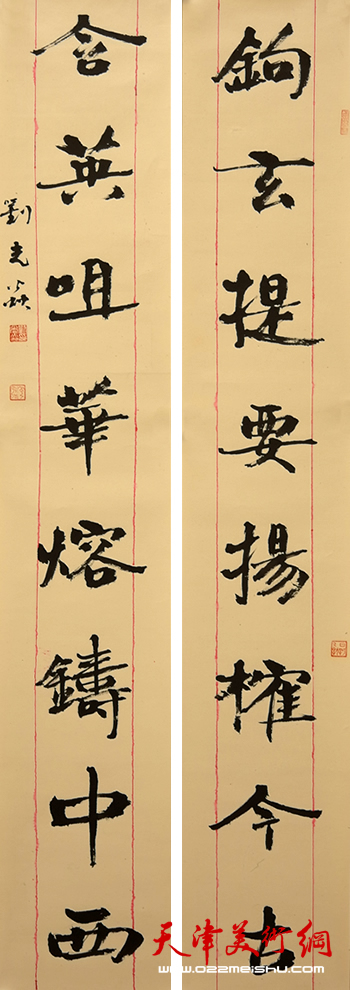 鉤玄提要揚榷今古
含英咀華熔鑄中西
劉
天津美術網
www.022meishu.com